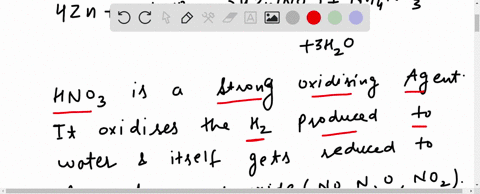 4Zn +
3
+3H2O
HNO3 is a strong oxidising Agent.
It oxidises the H2 produced to
water & itself gets reduced to
(NO, N2O, NO2).